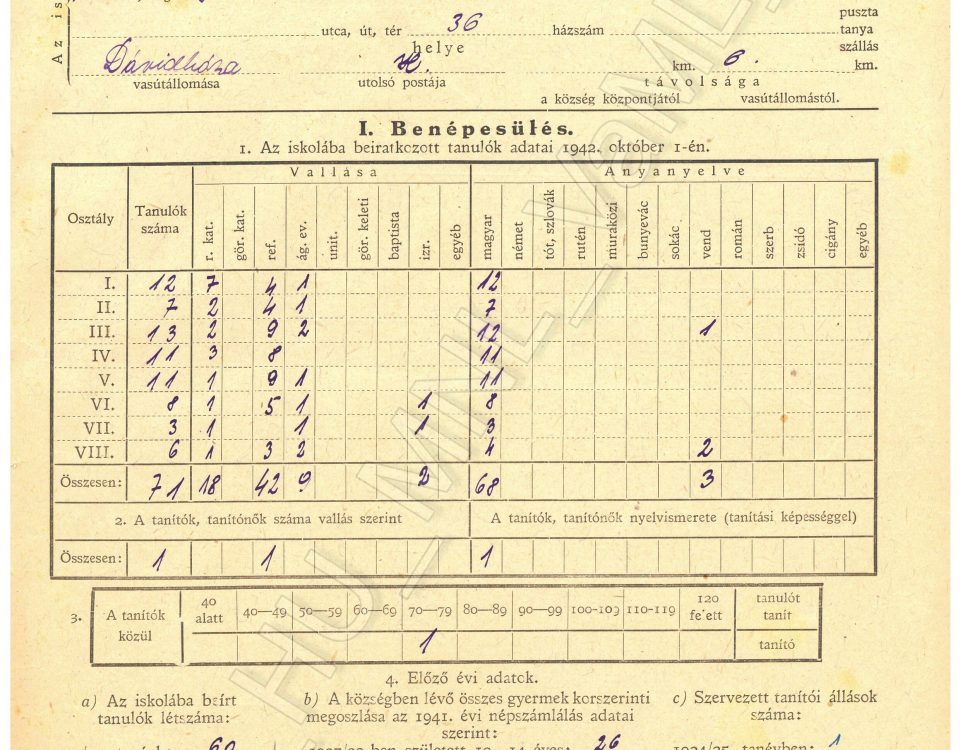 Az is
utca, út, tér 36 házszám puszta tanya szállás
helye
Dávidháza km. 6. km.
vasútállomása utolsó postája távolsága
a község központjától vasútállomástól.
I. Benépesülés.
1. Az iskolába beiratkozott tanulók adatai 1942. október 1-én.
Osztály Tanulók száma Vallása Anyanyelve
r. kat. gör. kat. ref. ág. ev. unit. gör. keleti baptista izr. egyéb magyar német tót, szlovák rutén muraközi bunyevác sokác vend román szerb zsidó cigány egyéb
I. 12 7 4 1 12
II. 7 2 4 1 7
III. 13 2 9 2 12 1
IV. 11 3 8 11
V. 11 1 9 1 11
VI. 8 1 5 1 1 8
VII. 3 1 1 1 3
VIII. 6 1 3 2 4 2
Összesen: 71 18 42 9 2 68 3
2. A tanítók, tanítónők száma vallás szerint A tanítók, tanítónők nyelvismerete (tanítási képességgel)
Összesen: 1 1 1
3. A tanítók közül 40 alatt 40—49 50—59 60—69 70—79 80—89 90—99 100-109 110-119 120 felett tanulót tanít
1 tanító
4. Előző évi adatok.
a) Az iskolába beírt tanulók létszáma:
b) A községben lévő összes gyermek korszerinti megoszlása az 1941. évi népszámlálás adatai szerint:
c) Szervezett tanítói állások száma:
26 1934/35. tanévben: 1
HU_MNL_VaML